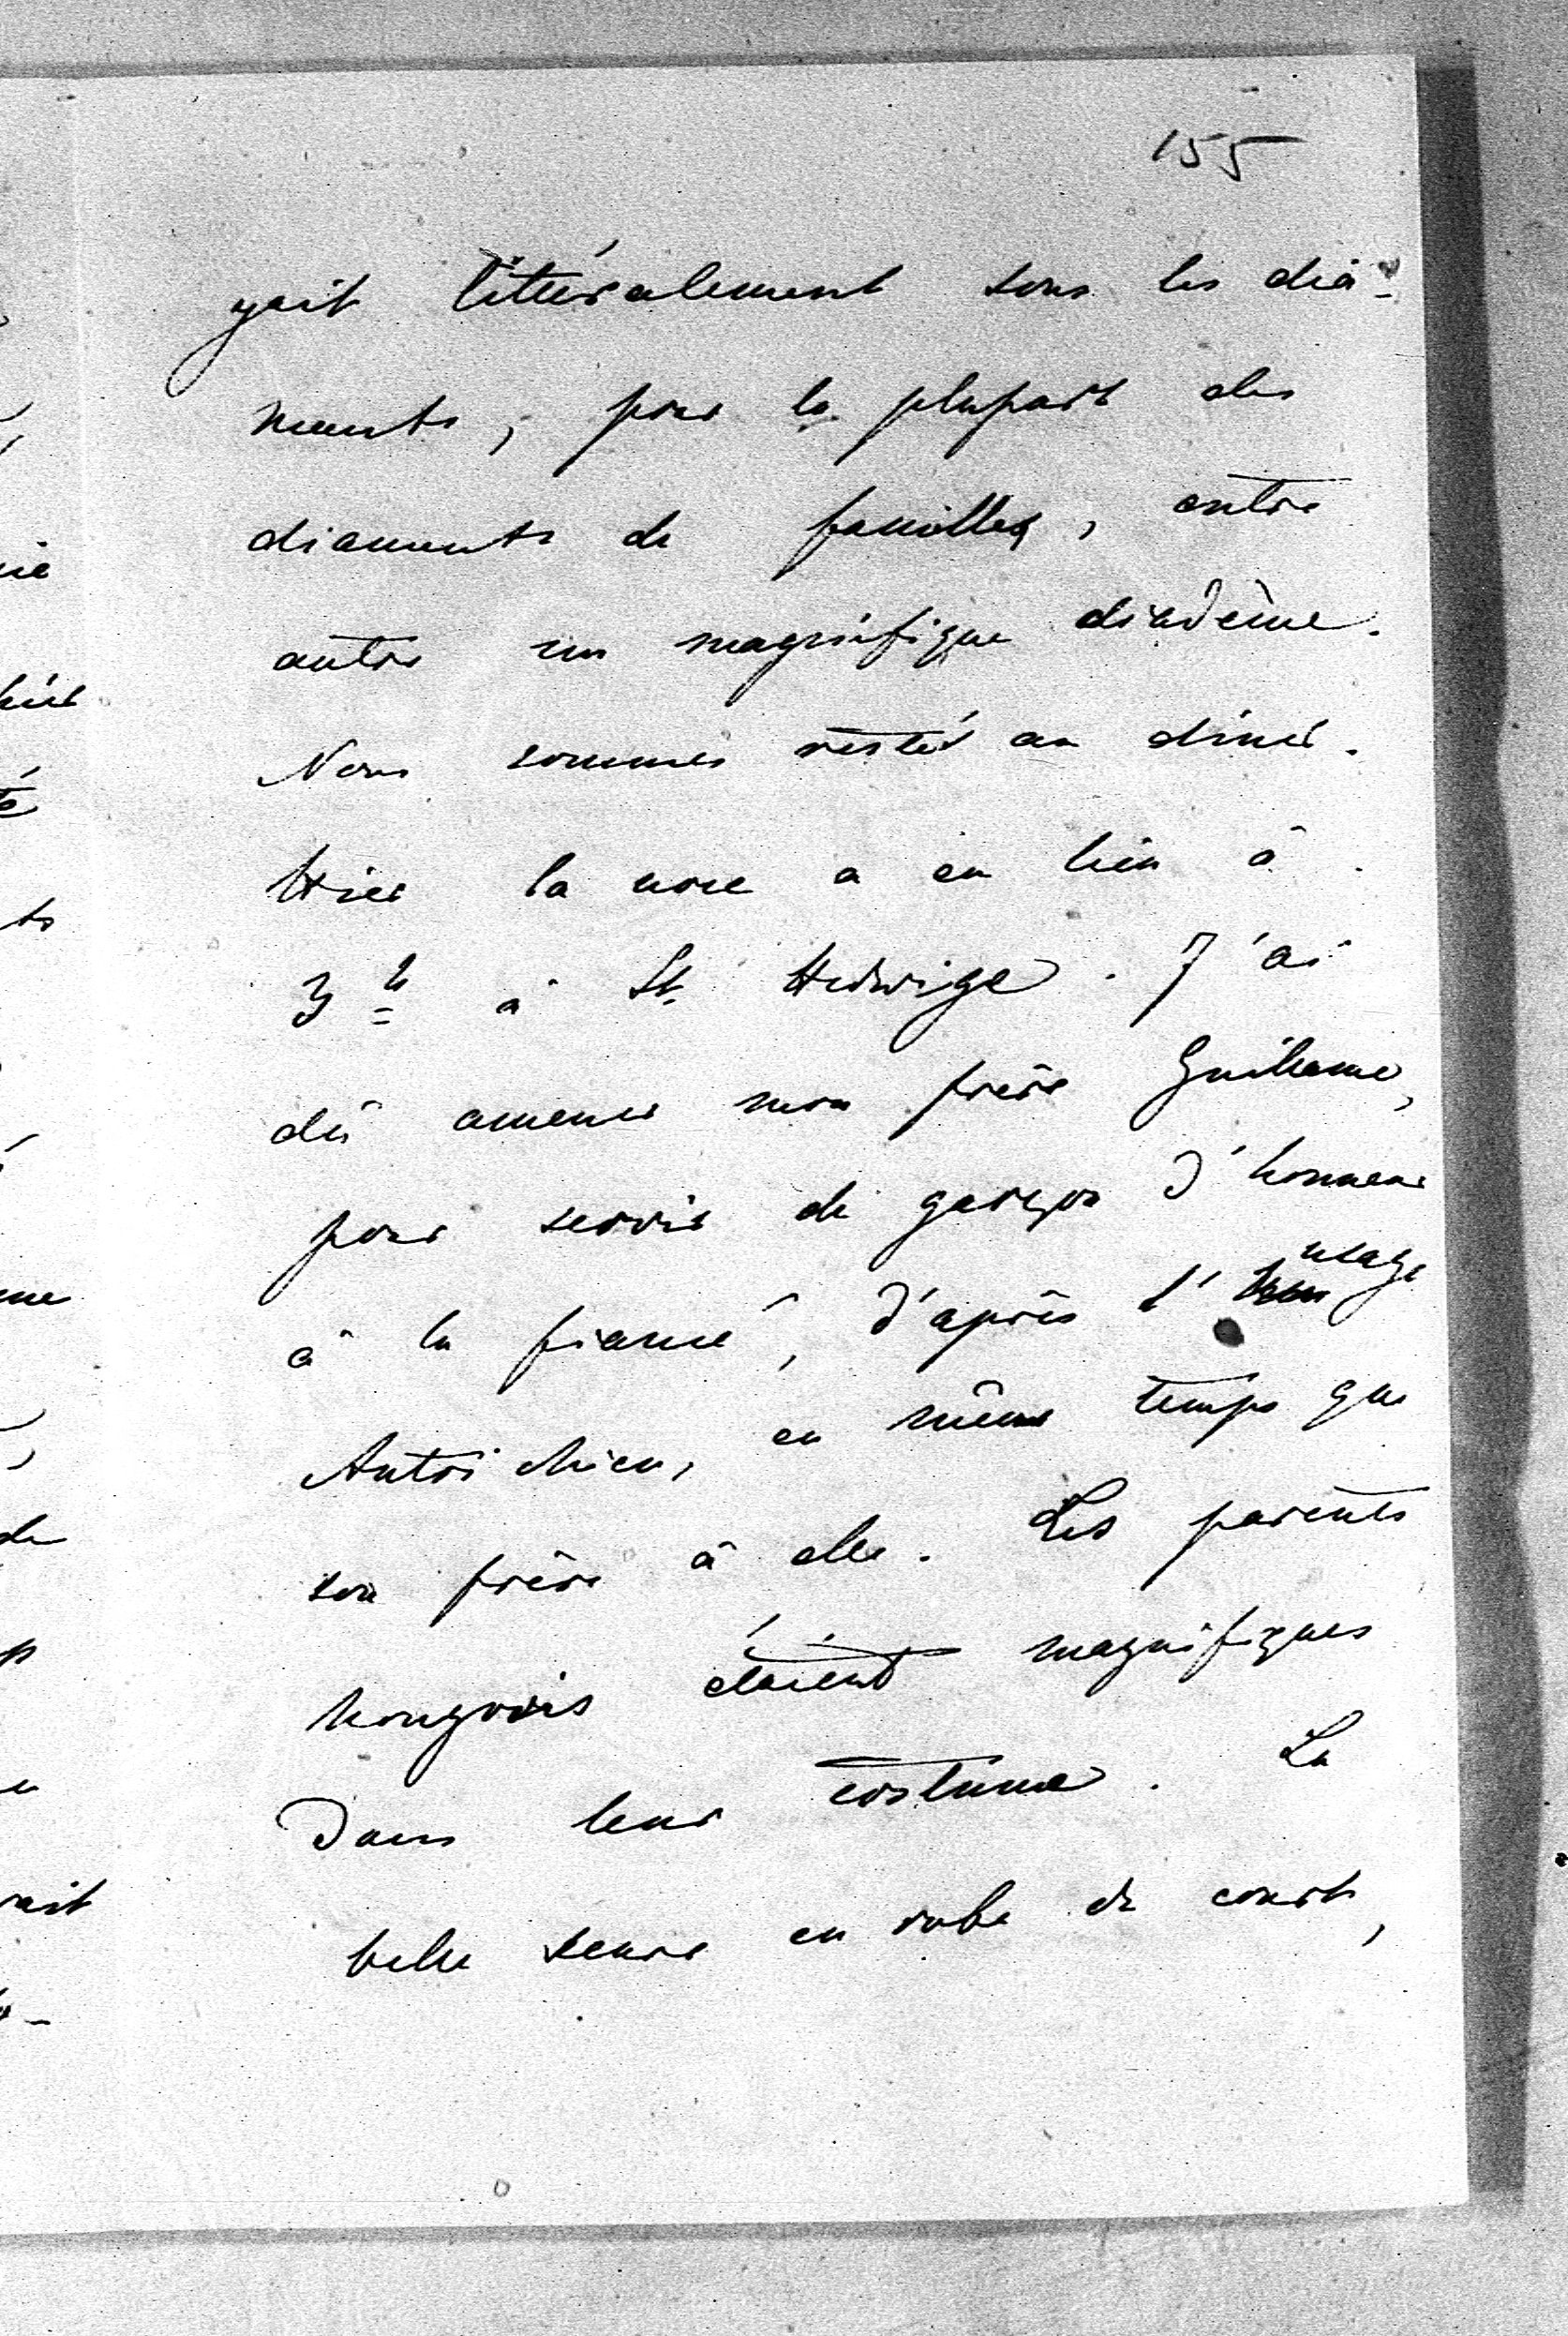 155
yait littéralement sous les dia-
mants, pour la plupart des
diamants de familles, entre
autre un magnifique diadème.
Nous sommes resté au diner.
Hier la noce a eu lieu à
3 h à St Hedwige. J'ai
dû amener mon frère Guillaume,
pour servir de garçon d'honneur
à la fiancé, d'après l' usage
Autrichien, en même temps que
son frère à elle. Les parents
hongrois étaient magnifiques
dans leur costume. La
belle seure en robe de court,